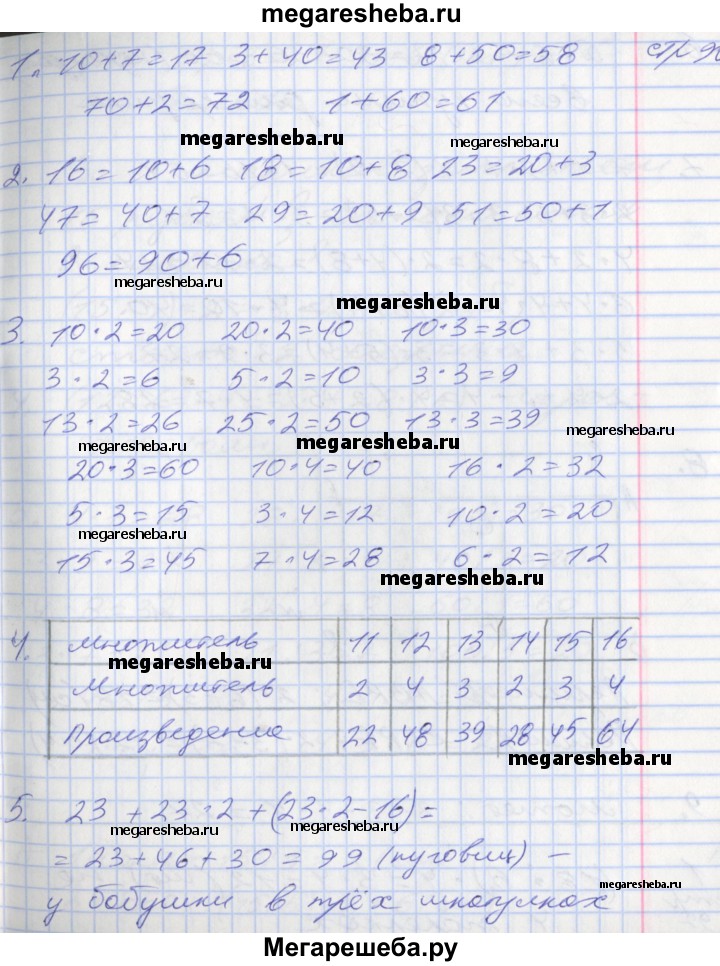 megaresheba.ru
1. 10+7=17 3+40=43 8+50=58 стр 90
70+2=72 1+60=61
megaresheba.ru megaresheba.ru
2. 16=10+6 18=10+8 23=20+3
47=40+7 29=20+9 51=50+1
96=90+6
megaresheba.ru megaresheba.ru
megaresheba.ru
3. 10·2=20 20·2=40 10·3=30
3·2=6 5·2=10 3·3=9
13·2=26 25·2=50 13·3=39
megaresheba.ru megaresheba.ru megaresheba.ru
20·3=60 10·4=40 16·2=32
5·3=15 3·4=12 10·2=20
megaresheba.ru megaresheba.ru
15·3=45 7·4=28 6·2=12
megaresheba.ru
4. Множитель 11 12 13 14 15 16
megaresheba.ru
Множитель 2 4 3 2 3 4
Произведение 22 48 39 28 45 64
megaresheba.ru
5. 23+23·2+(23·2-16)=
megaresheba.ru megaresheba.ru
=23+46+30=99 (пуговиц) –
megaresheba.ru
у бабушки в трёх шкатулках
Мегарешеба.ру